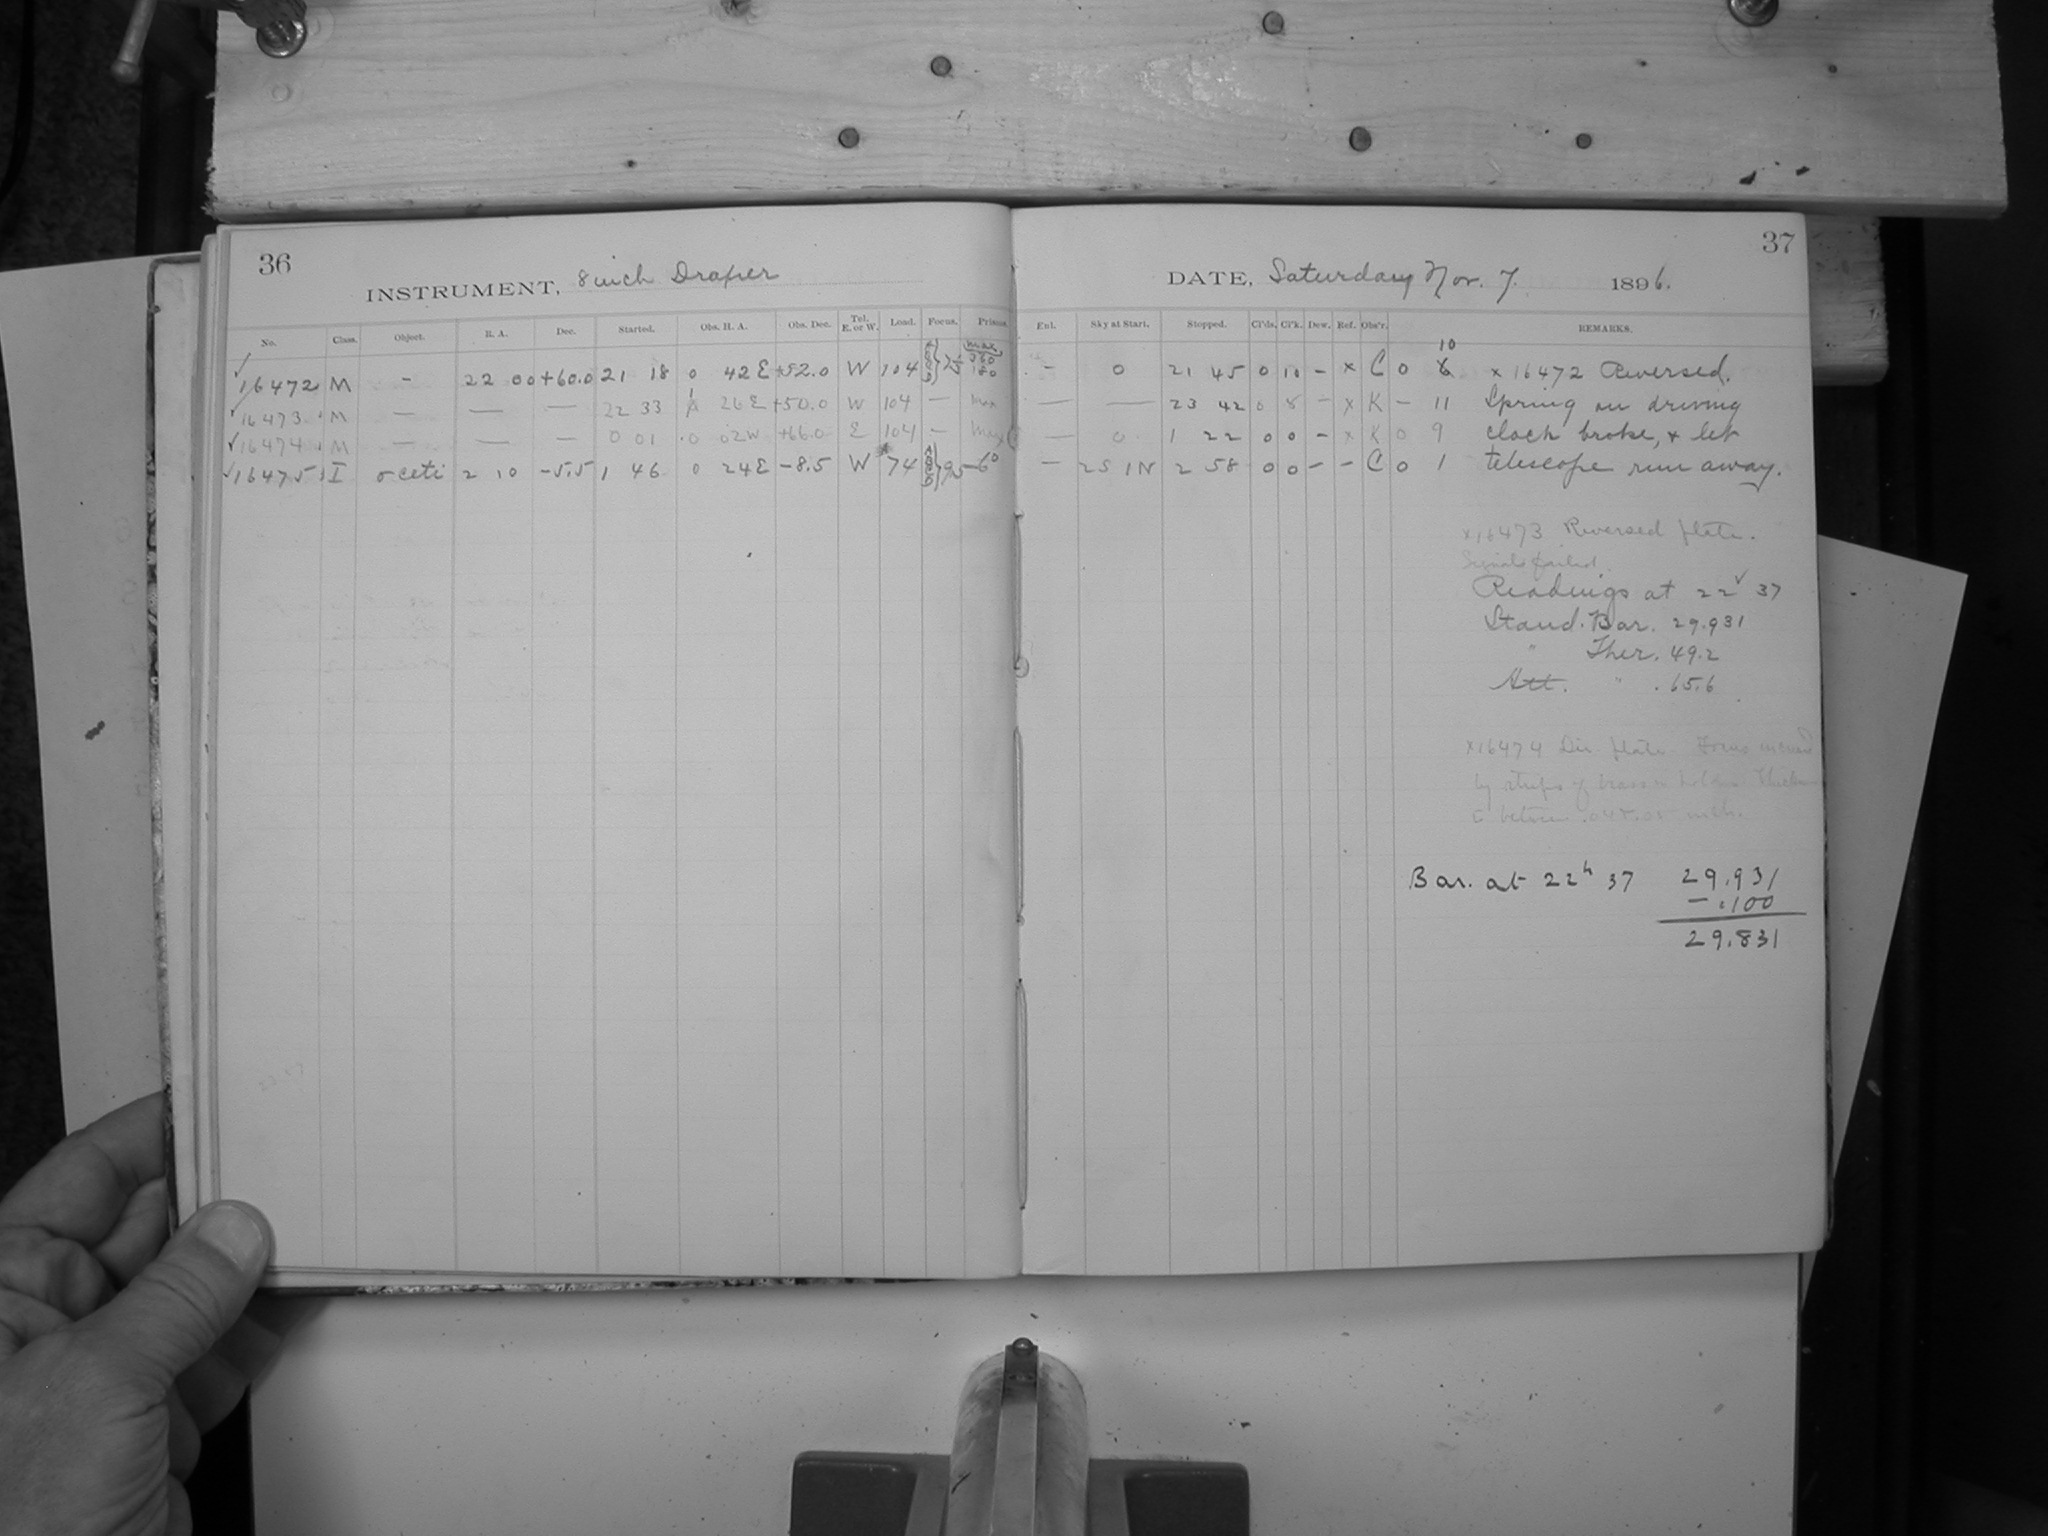 36
INSTRUMENT, 8 inch Draper
No. Class. Object. R. A. Dec. Started. Obs. H. A. Obs. Dec. Tel. E. or W. Load. Focus. Prisms.
16472 M - 22 00 +60.0 21 18 0 42 E +52.0 W 104
16473 M — — — 22 33 26 E +50.0 W 104 — Max
16474 M — — — 0 01 0 02 W +66.0 E 104 — Max
16475 I o ceti 2 10 -5.5 1 46 0 24 E -8.5 W 74 95 6°
37
DATE, Saturday Nov. 7. 1896.
Enl. Sky at Start. Stopped. Cl'ds. Cl'k. Dew. Ref. Obs'r. REMARKS.
- 0 21 45 0 10 - x C 0 10 x 16472 Reversed.
— — 23 42 0 8 - x K - 11 Spring on driving
— 0 1 22 0 0 - x K 0 9 clock broke, & let
— 2S 1N 2 58 0 0 - - C 0 1 telescope run away.
x16473 Reversed plate.
Signals failed.
Readings at 22 37
Stand. Bar. 29.931
" Ther. 49.2
Att. " .65.6
x16474 Dir. plate. Focus
by strips of brass
Bar. at 22h 37 29.931
- .100
29.831